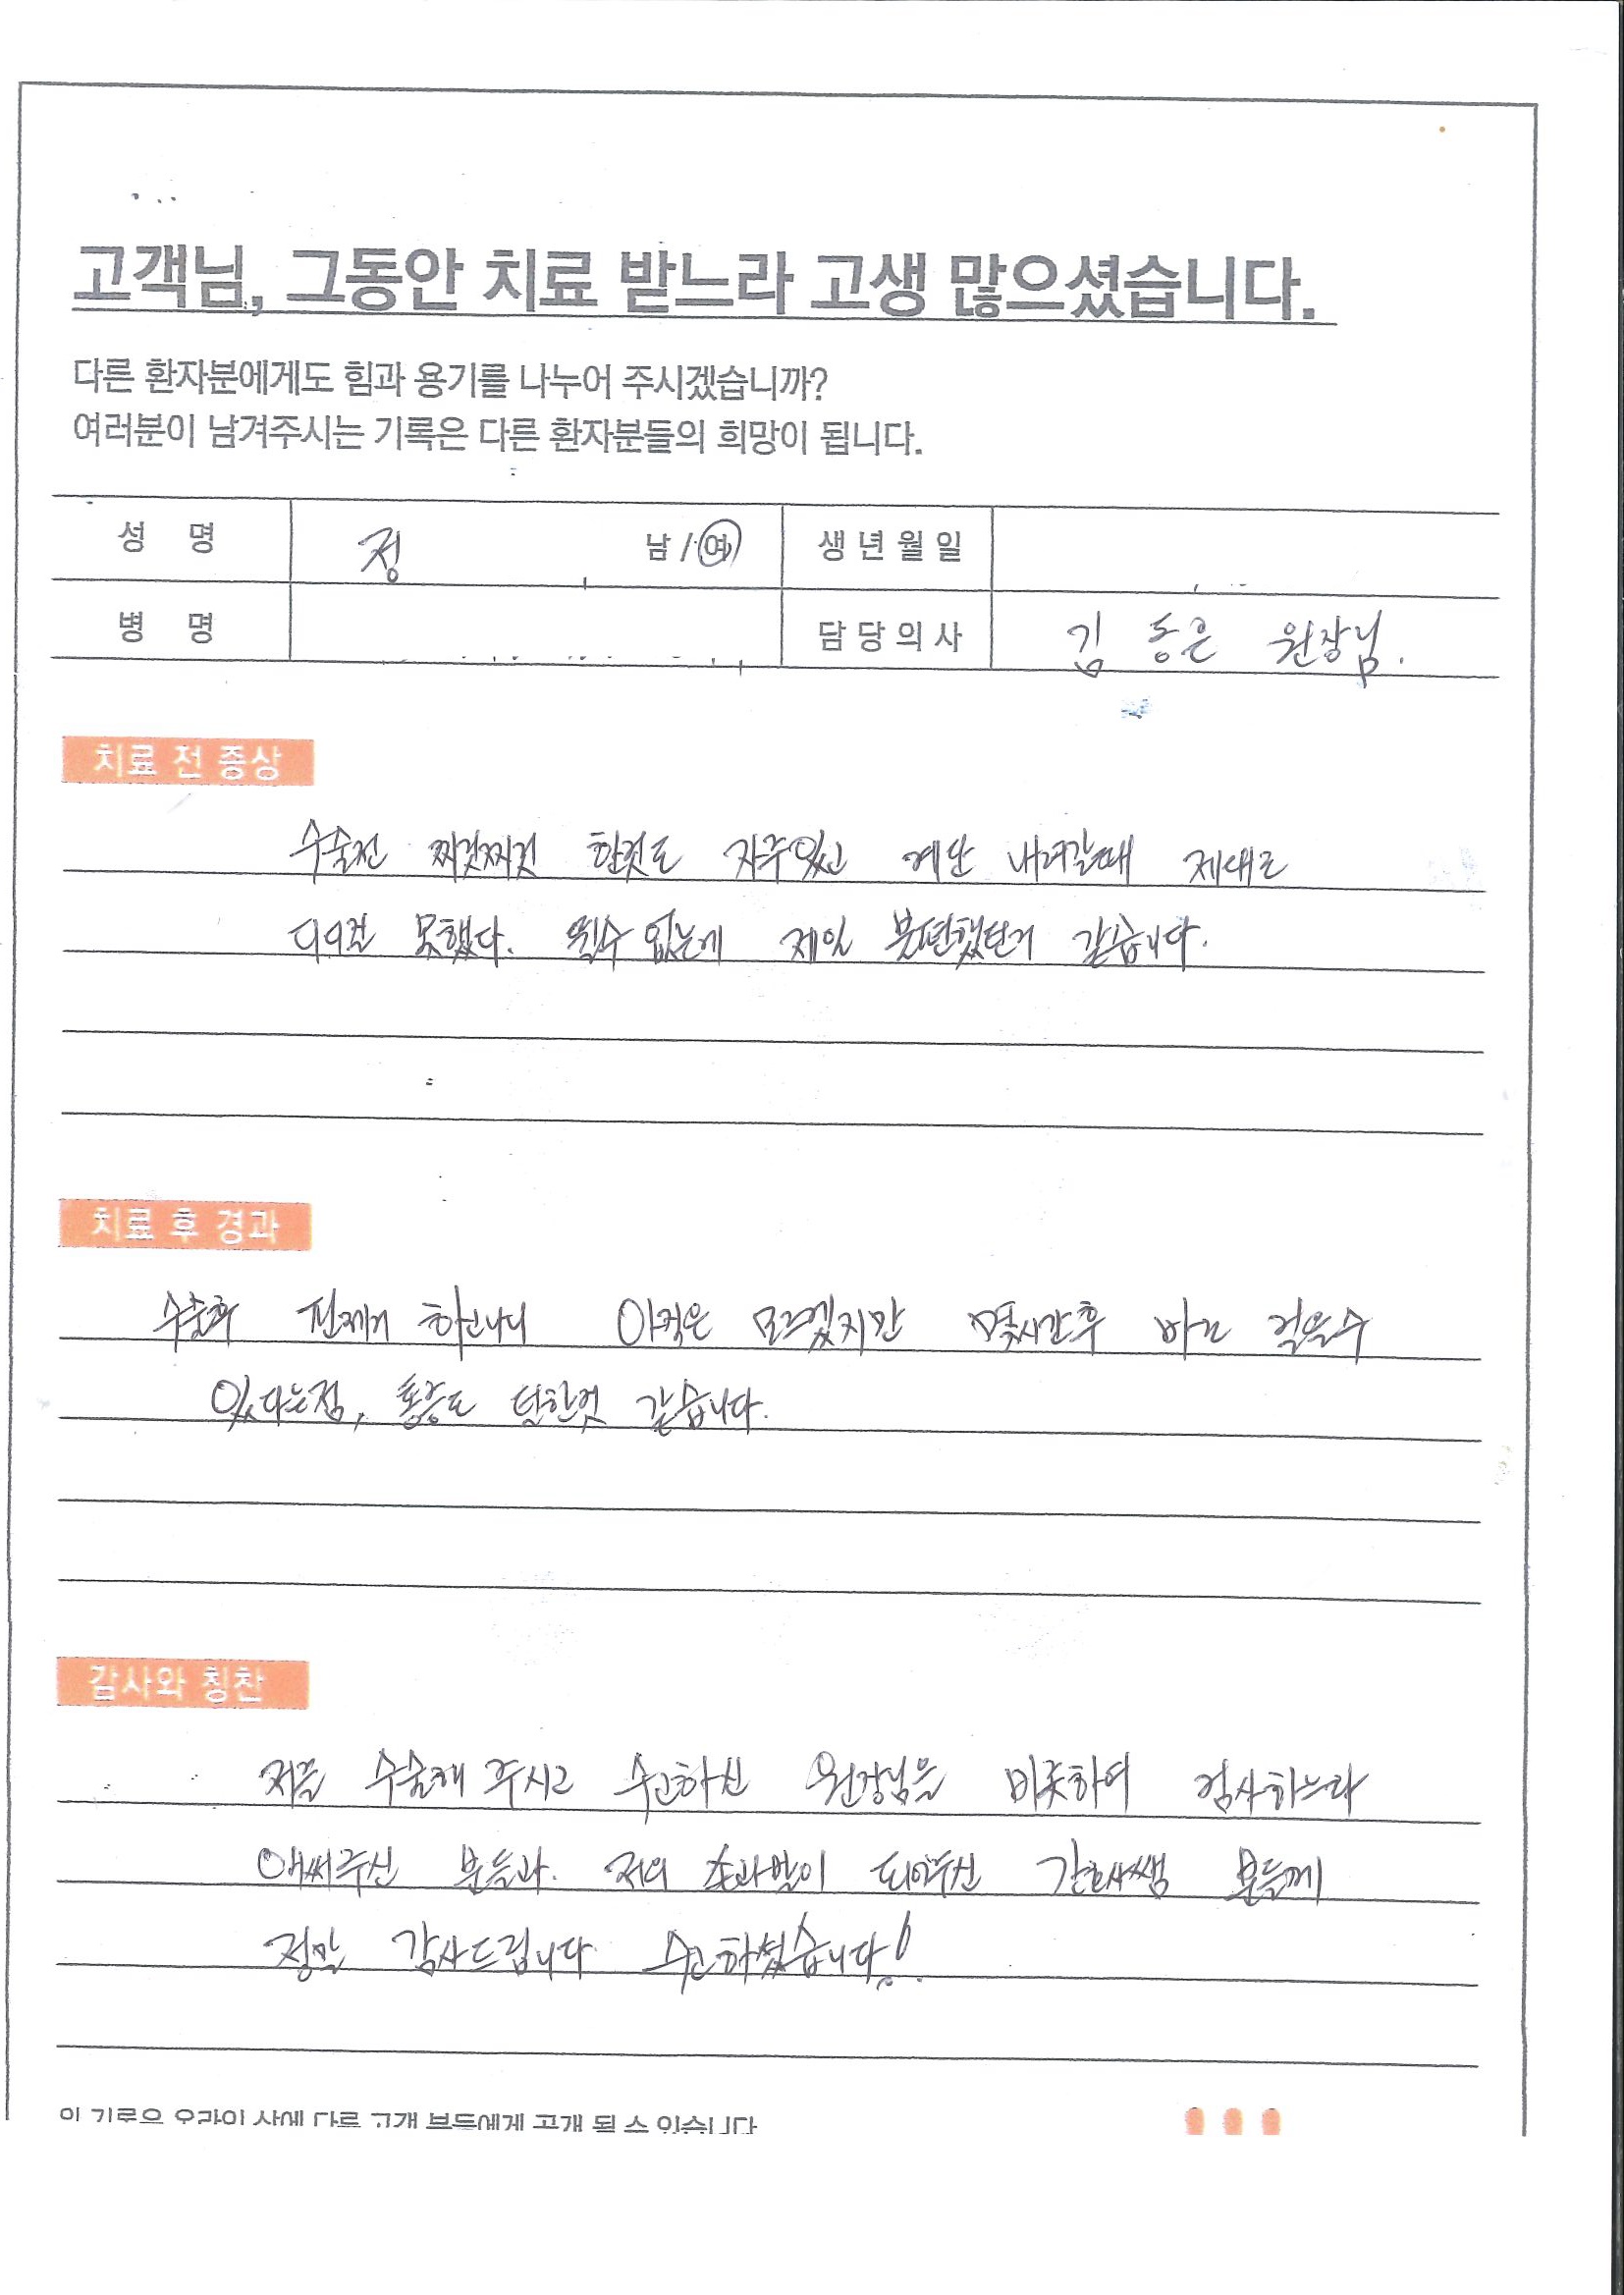 고객님, 그동안 치료 받느라 고생 많으셨습니다.
다른 환자분에게도 힘과 용기를 나누어 주시겠습니까?
여러분이 남겨주시는 기록은 다른 환자분들의 희망이 됩니다.
성 명 정 남 / 여 생년월일
병 명 담당의사 김동은 원장님.
치료 전 증상
수술전 찌릿찌릿 한것도 자주있고 계단 내려갈때 제대로
못했다. 뛸수 없는게 제일 불편했던거 같습니다.
치료 후 경과
수술후 아직은 모르겠지만 몇시간후 바로 걸을수
있다는점, 통증도 덜한것 같습니다.
감사와 칭찬
저를 수술해 주시고 수고하신 원장님을 비롯하여 검사하느라
애써주신 분들과. 저의 손과발이 되어주신 간호사쌤 분들께
정말 감사드립니다 수고하셨습니다!
이 기록은 온라인 상에 다른 고객 분들에게 공개 될 수 있습니다